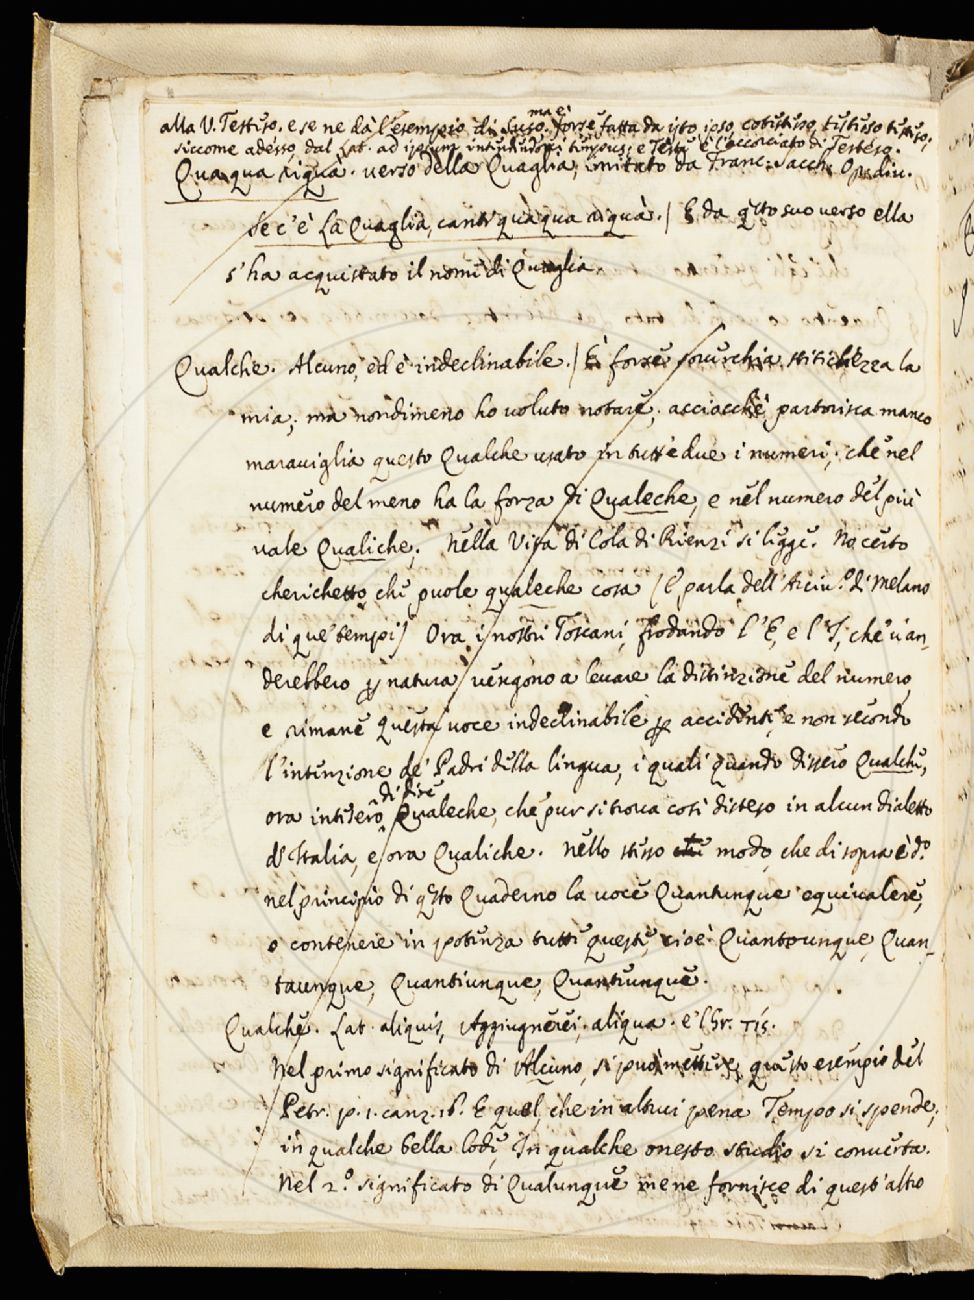 alla V. Testeso. e se ne dà l'esempio di Suso. ma è forse fatta da isto ipso, cotestesso, testesso testeso,
siccome adesso, dal Lat. ad ipsum, intendendosi tempus; e Testè è l'accorciato di Testeso.
Qua qua riquà. verso della Quaglia, imitato da Franc. Sacch. Op. div.
Se c'è la Quaglia, canti quaqua riquà. / E da q͂sto suo verso ella
s'ha acquistato il nome di Quaglia.
Qualche. Alcuno, ed è indeclinabile. / È forse soverchia stitichezza la
mia; ma nondimeno ho voluto notare, acciocchè partorisca manco
maraviglia questo Qualche usato in tutt'e due i numeri; che nel
numero del meno ha la forza di Qualeche, e nel numero del più
vale Qualiche. Nella Vita di Cola di Rienzi si legge. No certo
cherichetto, che puole qualeche cosa (e parla dell'Arciv.º di Melano
di que' tempi) Ora i nostri Toscani, frodando l'E, e l'I, che v'an-
derebbero p natura, vengono a levare la distinzione del numero,
e rimane questa voce indeclinabile p accidente, e non secondo
l'intenzione de' Padri della lingua, i quali quando dissero Qualche,
ora intesero di dire Qualeche, che pur si trova così disteso in alcun dialetto
d'Italia, e ora Qualiche. Nello stesso modo, che di sopra è d.º
nel principio di q͂sto Quaderno la voce Quantunque equivalere,
o contenere in potenza tutti questi, cioè Quantounque, Quan-
taunque, Quantiunque, Quanteunque.
Qualche. Lat. aliquis, Aggiugnerei, aliqua. e'l Gr. τίς.
Nel primo significato di Alcuno, si può mettere questo esempio del
Petr. p. 1. canz. 16. E quel, che in altrui pena Tempo si spende,
in qualche bella lode, In qualche onesto studio si converta.
Nel 2.º significato di Qualunque mene fornisce di quest'altro